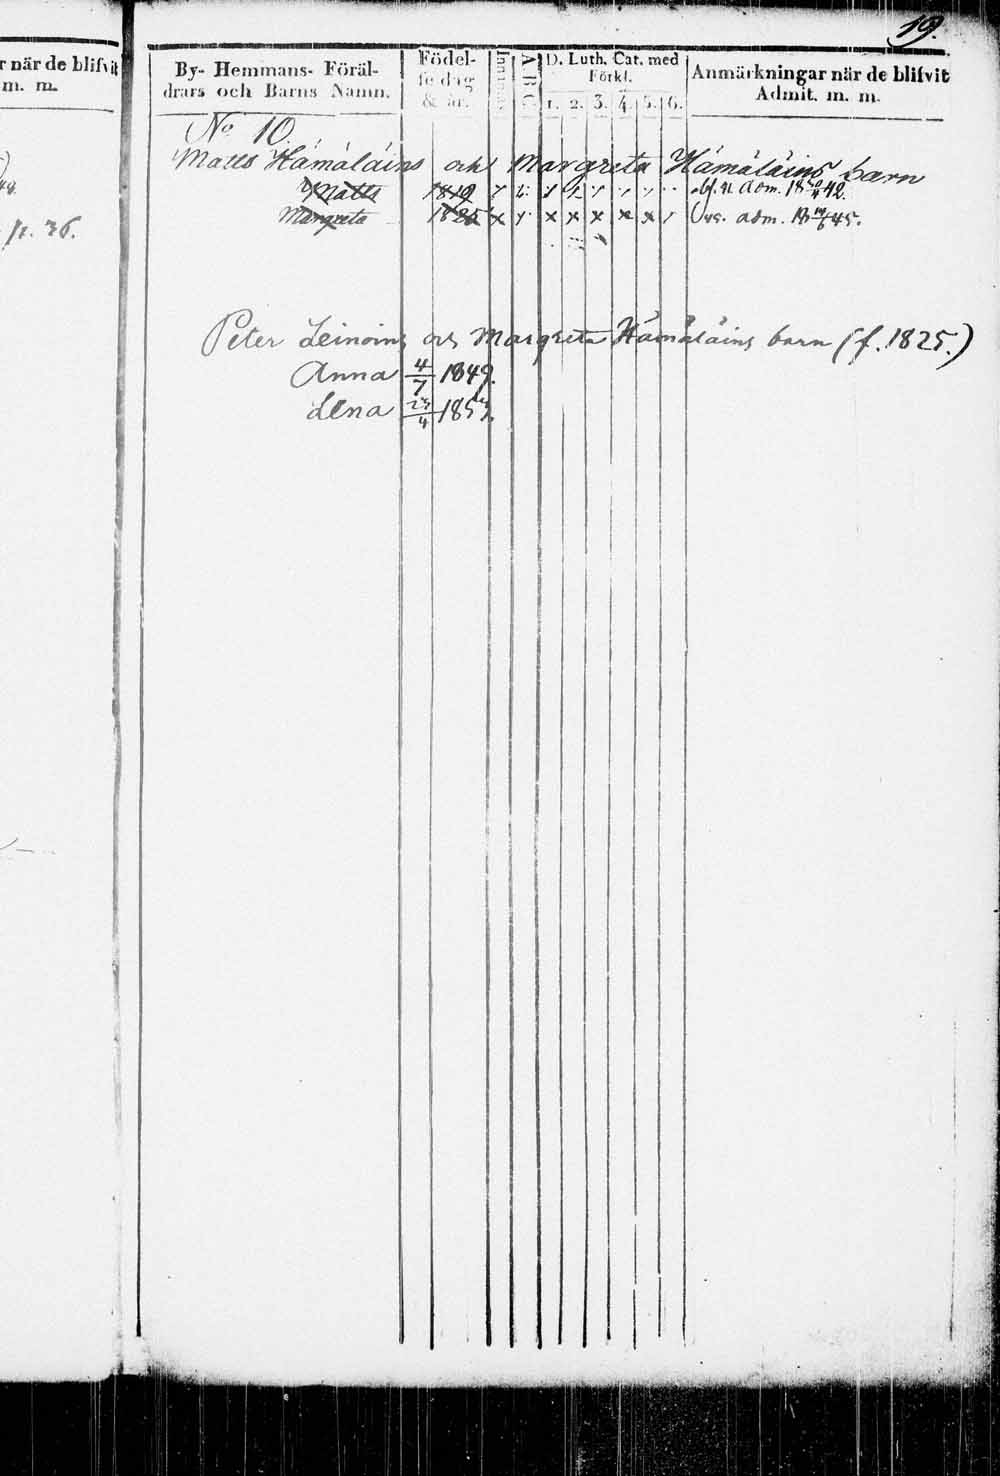 r när de blifvit
m. m.
44.
p. 36.
19.
By- Hemmans- Föräl-
drars och Barns Namn.
Födel-
se dag
& år.
Innanläs.
A B C
D. Luth. Cat. med
Förkl.
1. 2. 3. 4. 5. 6.
Anmärkningar när de blifvit
Admit. m. m.
No 10.
Matts Hämäläins och Margreta Hämäläins barn
Matts 1819 adm. 42.
Margreta 1825 x x x x x x x adm. 45.
Peter Leinoins och Margreta Hämäläins barn (f. 1825.)
Anna 4/7 1849.
Lena 23/4 1853.